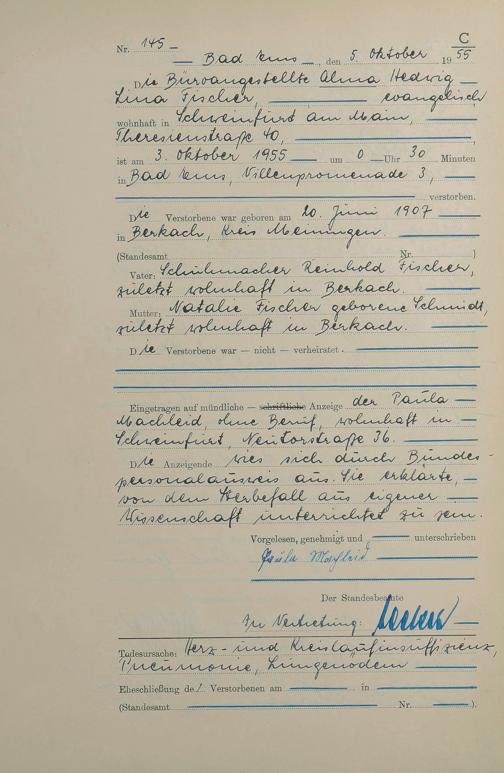 C
Nr. 145
Bad Ems, den 5. Oktober 1955
Die Büroangestellte Alma Hedwig
Lina Fischer, evangelisch
wohnhaft in Schweinfurt am Main,
Theresienstraße 40,
ist am 3. Oktober 1955 um 0 Uhr 30 Minuten
in Bad Ems, Villenpromenade 3,
verstorben.
Die Verstorbene war geboren am 20. Juni 1907
in Berkach, Kreis Meiningen.
(Standesamt Nr. )
Vater: Schuhmacher Reinhold Fischer,
zuletzt wohnhaft in Berkach.
Mutter: Natalie Fischer geborene Schmidt,
zuletzt wohnhaft in Berkach.
Die Verstorbene war — nicht — verheiratet
Eingetragen auf mündliche — schriftliche Anzeige der Paula
Machleid, ohne Beruf, wohnhaft in
Schweinfurt, Neutorstraße 36.
Die Anzeigende wies sich durch Bundes-
personalausweis aus. Sie erklärte,
von dem Sterbefall aus eigener
Wissenschaft unterrichtet zu sein.
Vorgelesen, genehmigt und unterschrieben
Paula Machleid
Der Standesbeamte
In Vertretung:
Todesursache: Herz- und Kreislaufinsuffizienz,
Pneumonie, Lungenödem
Eheschließung de/ Verstorbenen am in
(Standesamt Nr. ).